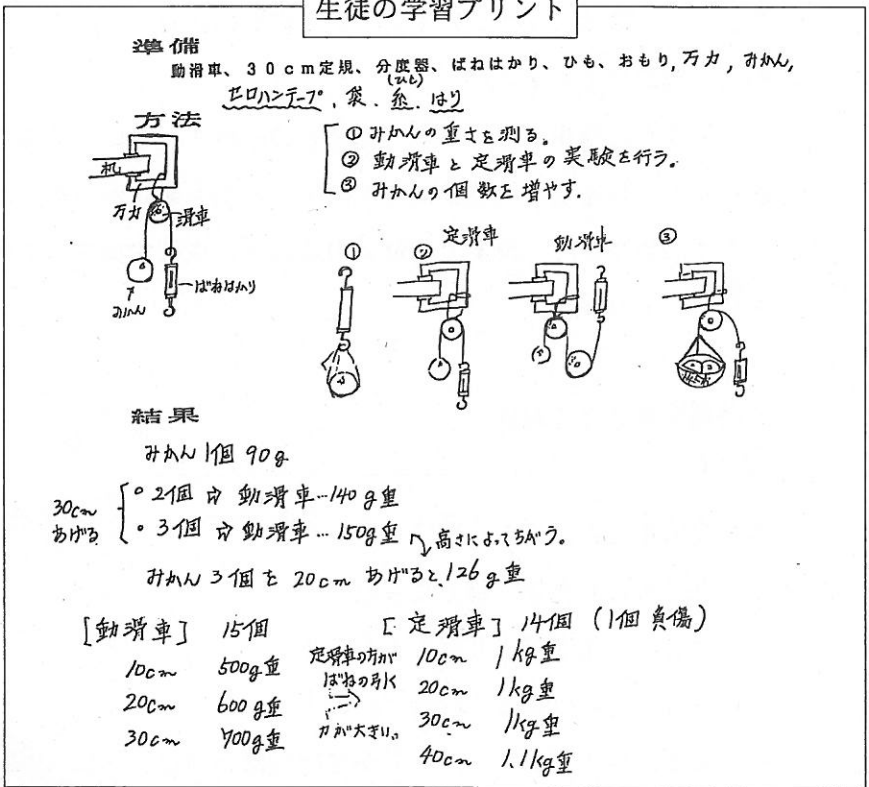 生徒の学習プリント
準備
動滑車、30cm定規、分度器、ばねはかり、ひも、おもり, 万力, みかん,
セロハンテープ, 袋. 糸(ひも). はり
方法
① みかんの重さを測る。
② 動滑車と定滑車の実験を行う。
③ みかんの個数を増やす.
机
万力
滑車
みかん
ばねはかり
①
② 定滑車 動滑車
③
結果
みかん1個 90g
30cmあげる
• 2個 ⇨ 動滑車…140g重
• 3個 ⇨ 動滑車…150g重
高さによってちがう。
みかん3個を20cmあげると、126g重
[動滑車] 15個 [定滑車] 14個 (1個負傷)
10cm 500g重
20cm 600g重
30cm 700g重
定滑車の方が
ばねの引く
力が大きい。
10cm 1kg重
20cm 1kg重
30cm 1kg重
40cm 1.1kg重